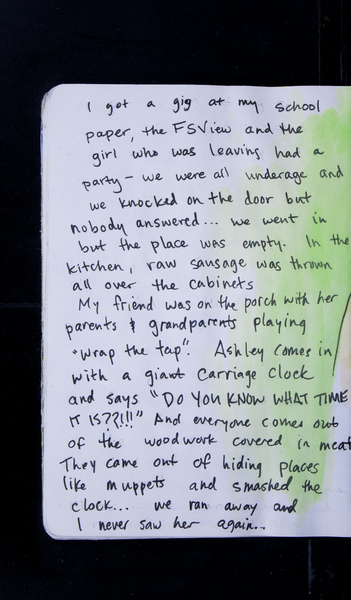 I got a gig at my school
paper, the FSView and the
girl who was leaving had a
party - we were all underage and
we knocked on the door but
nobody answered... we went in
but the place was empty. In the
kitchen, raw sausage was thrown
all over the cabinets
My friend was on the porch with her
parents & grandparents playing
"wrap the tap". Ashley comes in
with a giant carriage clock
and says "DO YOU KNOW WHAT TIME
IT IS??!!!" And everyone comes out
of the woodwork covered in meat
They came out of hiding places
like muppets and smashed the
clock... we ran away and
I never saw her again...